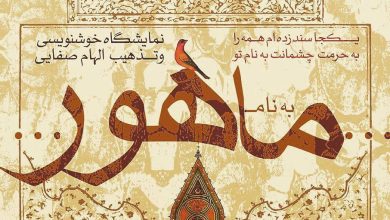 یکجا سندزده‌ام همه را
به حرمت چشمانت به نام تو
نمایشگاه خوشنویسی
وتذهیب الهام صفایی
به نام
ماهور